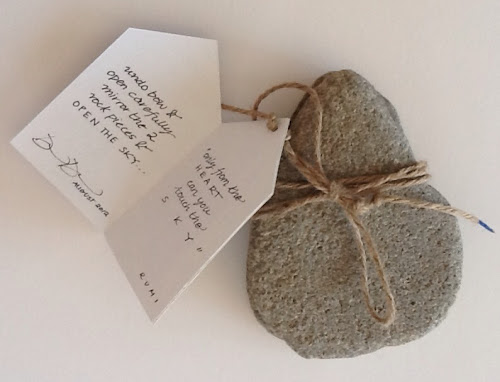 undo bow &
open carefully
mirror the 2
rock pieces &
OPEN THE SKY...
AUGUST 2012
"only from the
HEART
can you
touch the
S K Y "
R U M I